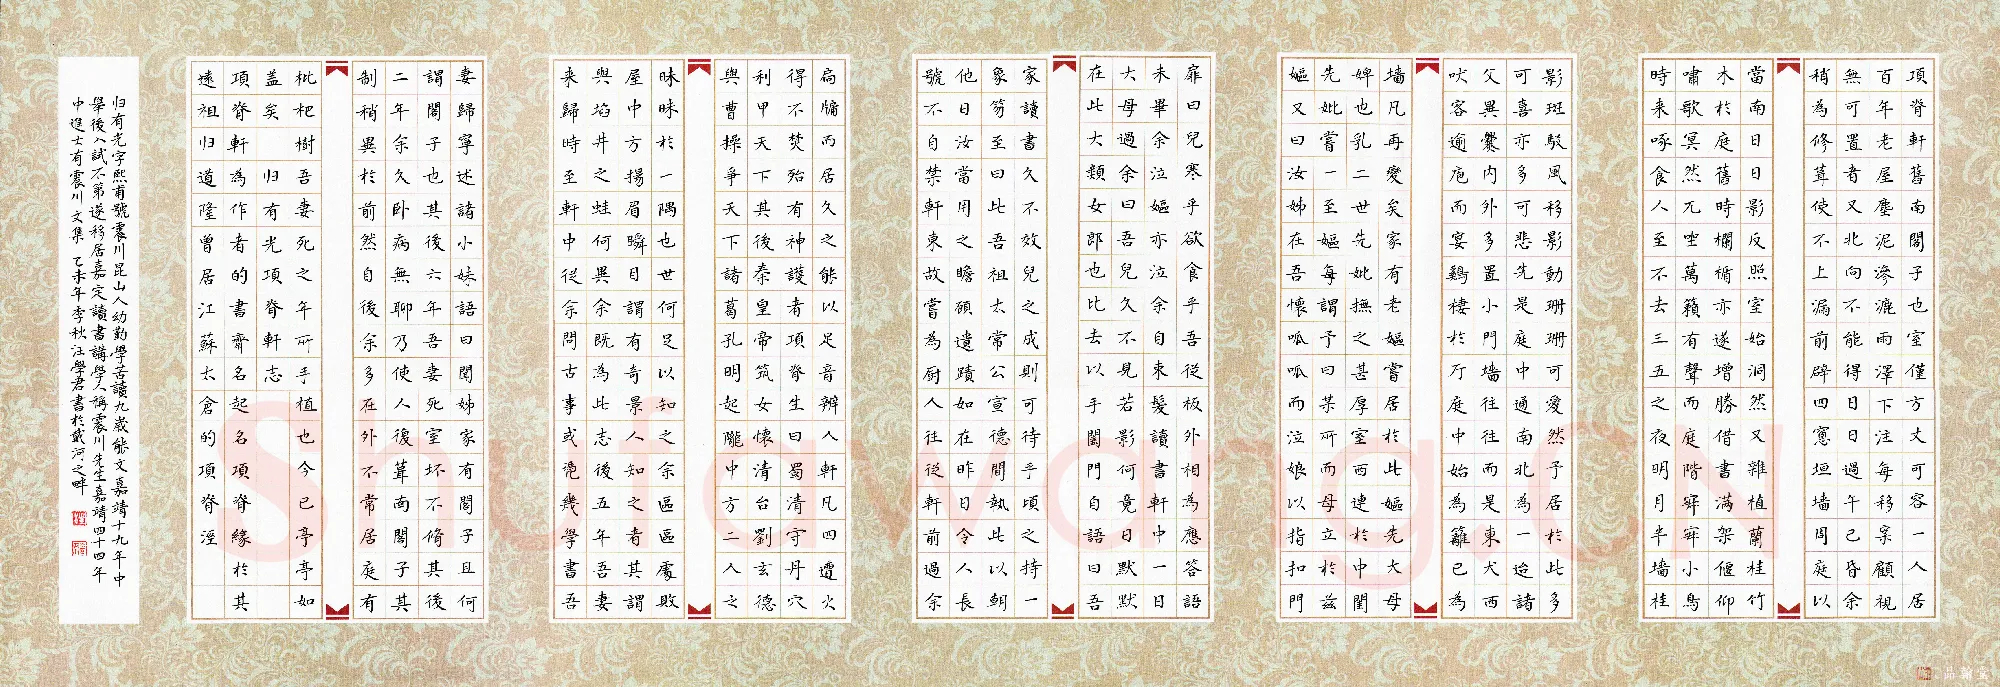 項脊軒舊南閣子也室僅方丈可容一人居
百年老屋塵泥滲漉雨澤下注每移案顧視
無可置者又北向不能得日日過午已昏余
稍為修葺使不上漏前辟四窻垣墙周庭以
當南日日影反照室始洞然又雜植蘭桂竹
木於庭舊時欄楯亦遂增勝借書满架偃仰
嘯歌冥然兀坐萬籟有聲而庭階寂寂小鳥
時来啄食人至不去三五之夜明月半墙桂
影斑駁風移影動珊珊可愛然予居於此多
可喜亦多可悲先是庭中通南北為一迨諸
父異爨内外多置小門墻往往而是東犬西
吠客逾庖而宴鷄棲於厅庭中始為籬已為
墻凡再變矣家有老嫗嘗居於此嫗先大母
婢也乳二世先妣撫之甚厚室西連於中閨
先妣嘗一至嫗每謂予曰某所而母立於兹
嫗又曰汝姊在吾懷呱呱而泣娘以指扣門
扉曰兒寒乎欲食乎吾從板外相為應答語
未畢余泣嫗亦泣余自束髮讀書軒中一日
大母過余曰吾兒久不見若影何竟日默默
在此大類女郎也比去以手闔門自語曰吾
家讀書久不效兒之成則可待乎頃之持一
象笏至曰此吾祖太常公宣德間執此以朝
他日汝當用之瞻顧遺蹟如在昨日令人長
號不自禁軒東故嘗為厨人往從軒前過余
扃牖而居久之能以足音辨人軒凡四遭火
得不焚殆有神護者項脊生曰蜀清守丹穴
利甲天下其後秦皇帝筑女懷清台劉玄德
與曹操爭天下諸葛孔明起隴中方二人之
昧昧於一隅也世何足以知之余區區處敗
屋中方揚眉瞬目謂有奇景人知之者其謂
與埳井之蛙何異余既為此志後五年吾妻
来歸時至軒中從余問古事或凭幾學書吾
妻歸寧述諸小妹語曰聞姊家有閣子且何
謂閣子也其後六年吾妻死室坏不脩其後
二年余久卧病無聊乃使人復葺南閣子其
制稍異於前然自後余多在外不常居庭有
枇杷樹吾妻死之年所手植也今已亭亭如
盖矣 归有光項脊軒志
項脊軒為作者的書齋名起名項脊緣於其
遠祖归道隆曾居江蘇太倉的項脊涇
归有光字熙甫號震川昆山人幼勤學苦讀九歲能文嘉靖十九年中
舉後八試不第遂移居嘉定讀書講學人稱震川先生嘉靖四十四年
中進士有震川文集 乙未年季秋汪學君書於戴河之畔
Shufawang.CN
品翰堂